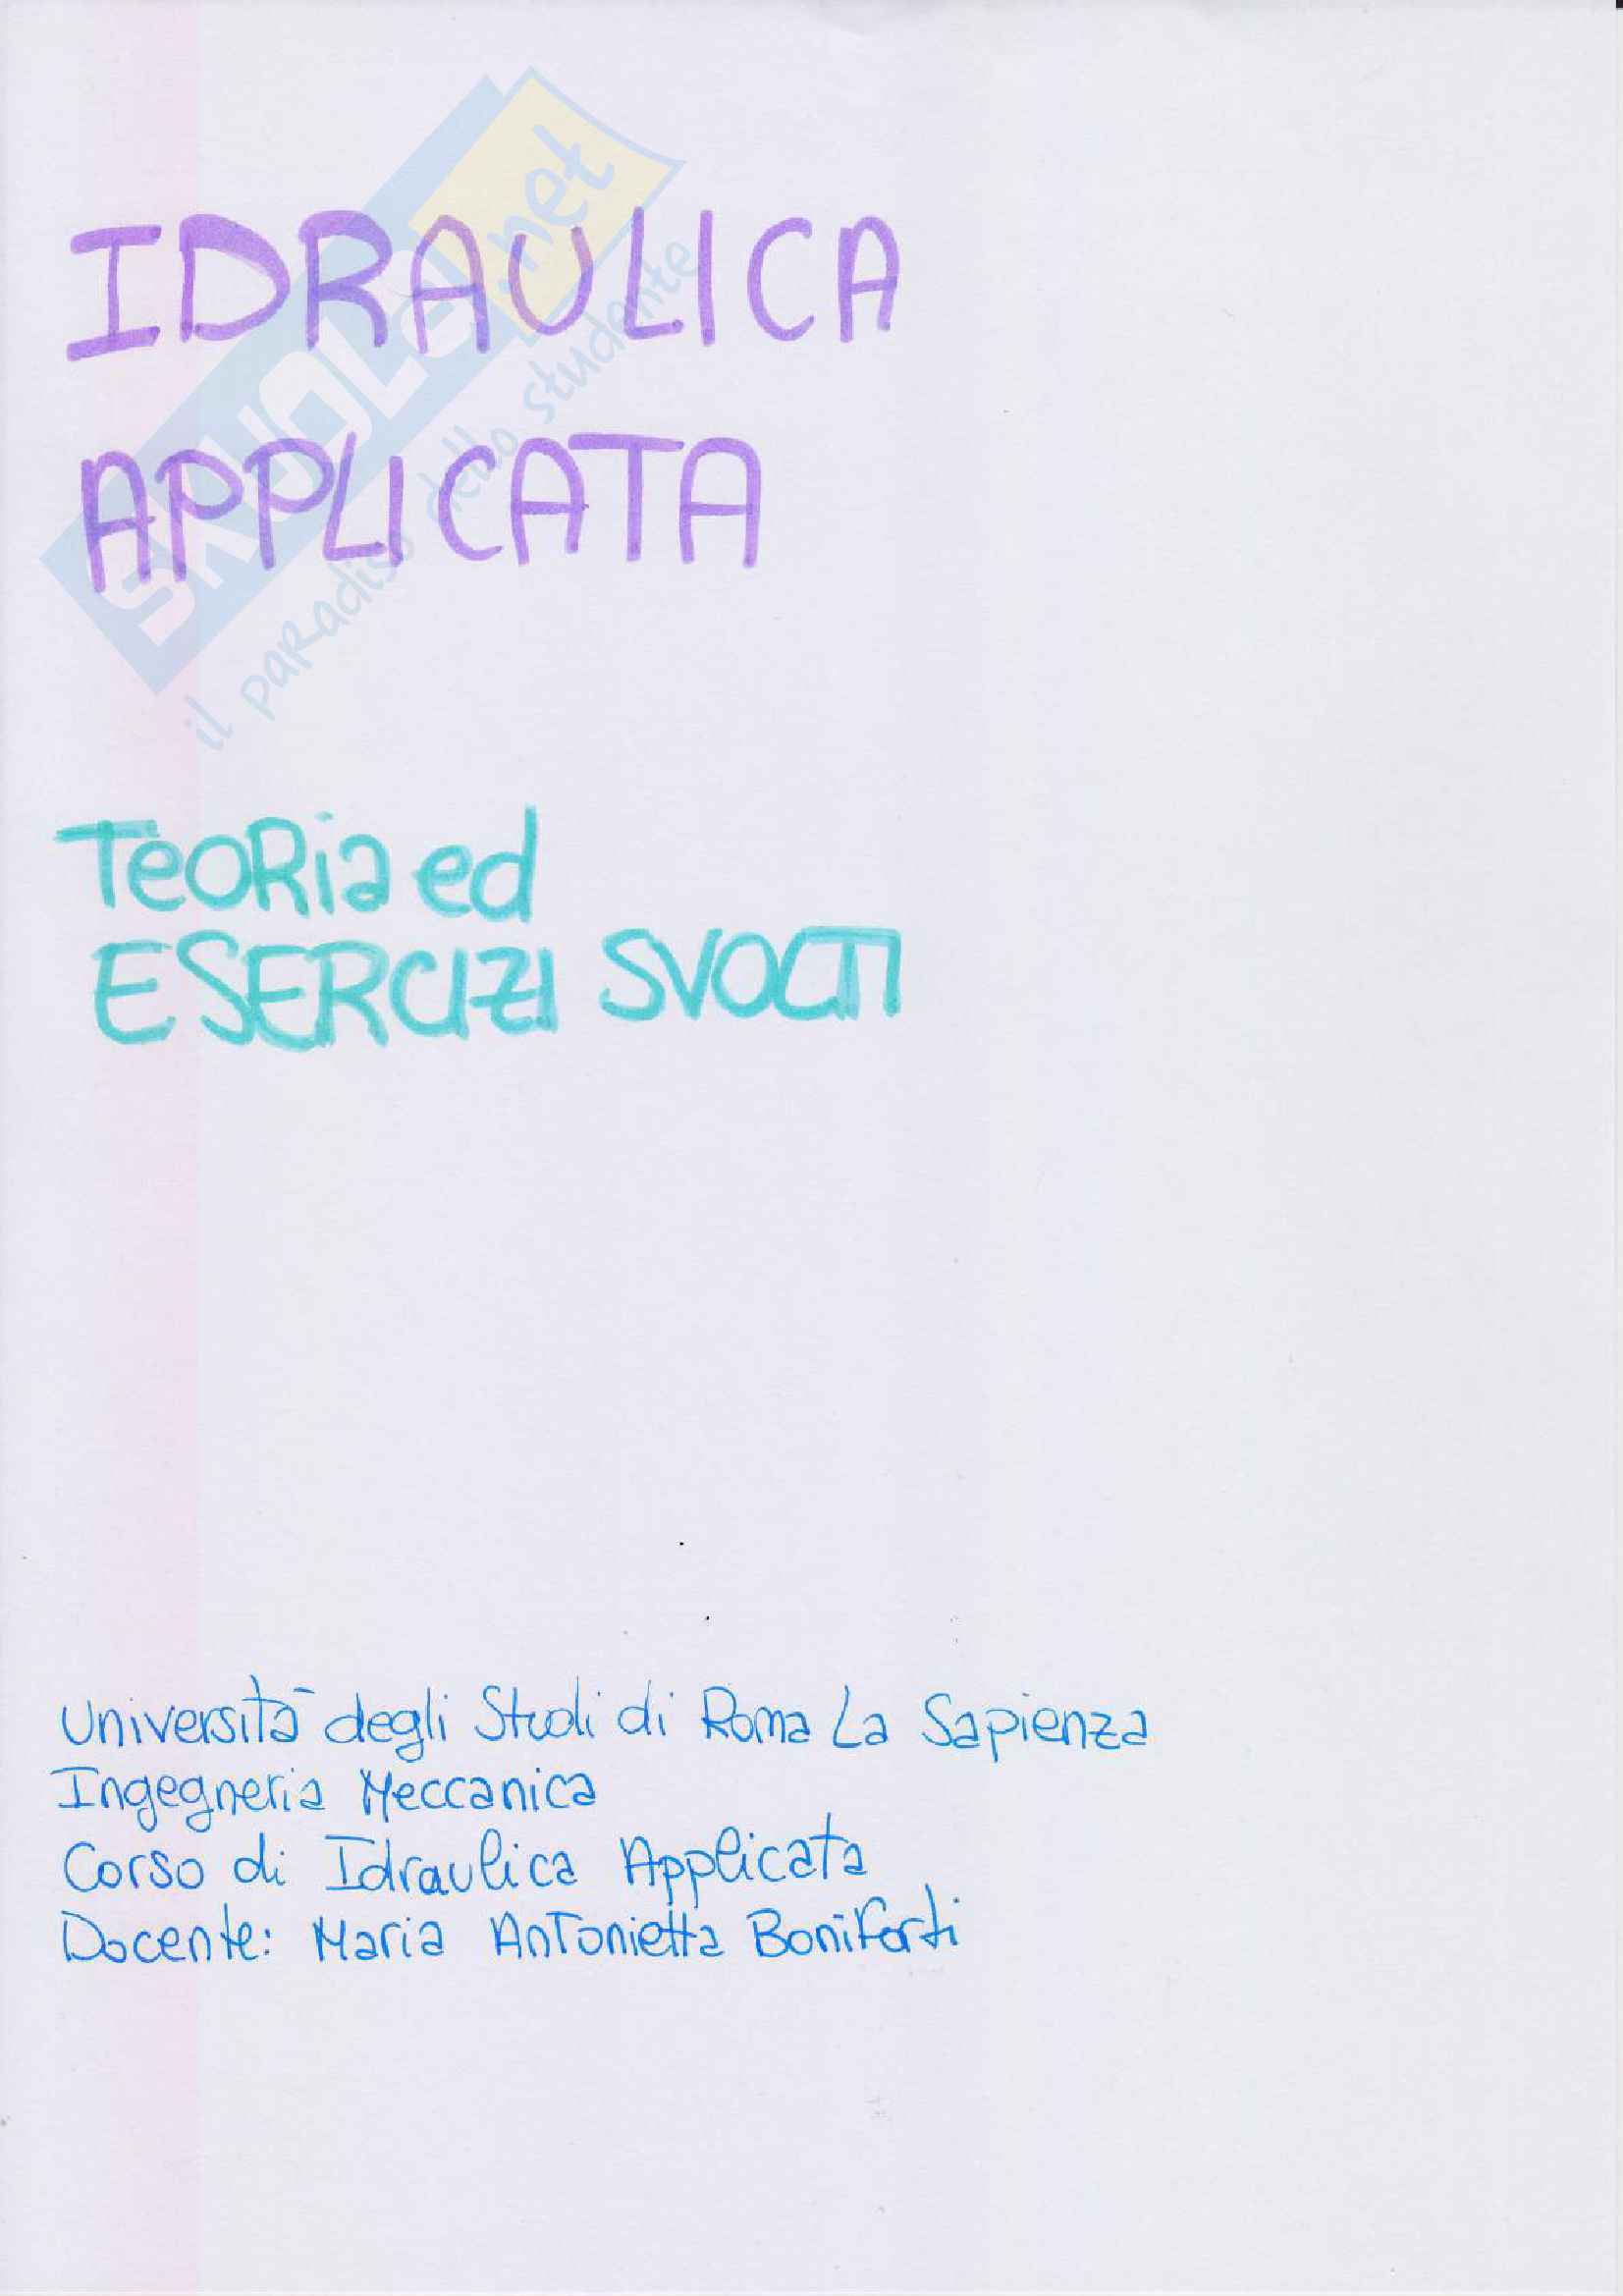 IDRAULICA
APPLICATA
SKUOLA.net
il paradiso dello studente
TeoRia ed
ESERCIZI SVOLTI
Università degli Studi di Roma La Sapienza
Ingegneria Meccanica
Corso di Idraulica Applicata
Docente: Maria Antonietta Boniforti